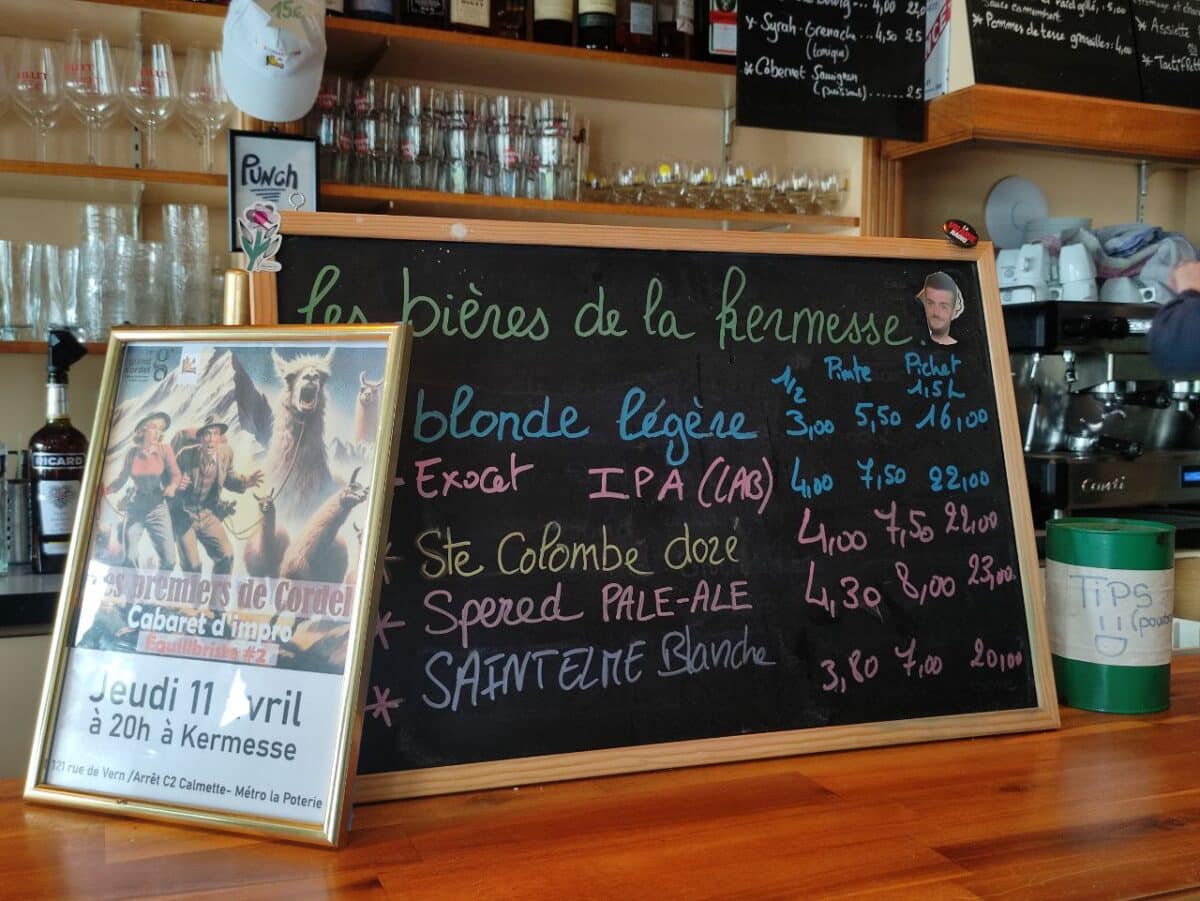 15€
Syrah-Grenache....4,50 25
(tonique)
* Cabernet Sauvignon
(puissant).......25
Sauce camembert
* Pommes de terre grenailles: 4,00
* Assiette
* Tartiflette
PUNCH
les bières de la kermesse.
1/2 Pinte Pichet
1,5L
blonde légère 3,00 5,50 16,00
- Exocet IPA (LAB) 4,00 7,50 22,00
* Ste Colombe dozé 4,00 7,50 22,00
* Spered PALE-ALE 4,30 8,00 23,00
* SAINTELME Blanche 3,80 7,00 20,00
RICARD
Conti
TiPS
!! (pourboire
es premiers de Cordel
Cabaret d'impro
Équilibriste #2
Jeudi 11 avril
à 20h à Kermesse
121 rue de Vern /Arrêt C2 Calmette- Métro la Poterie